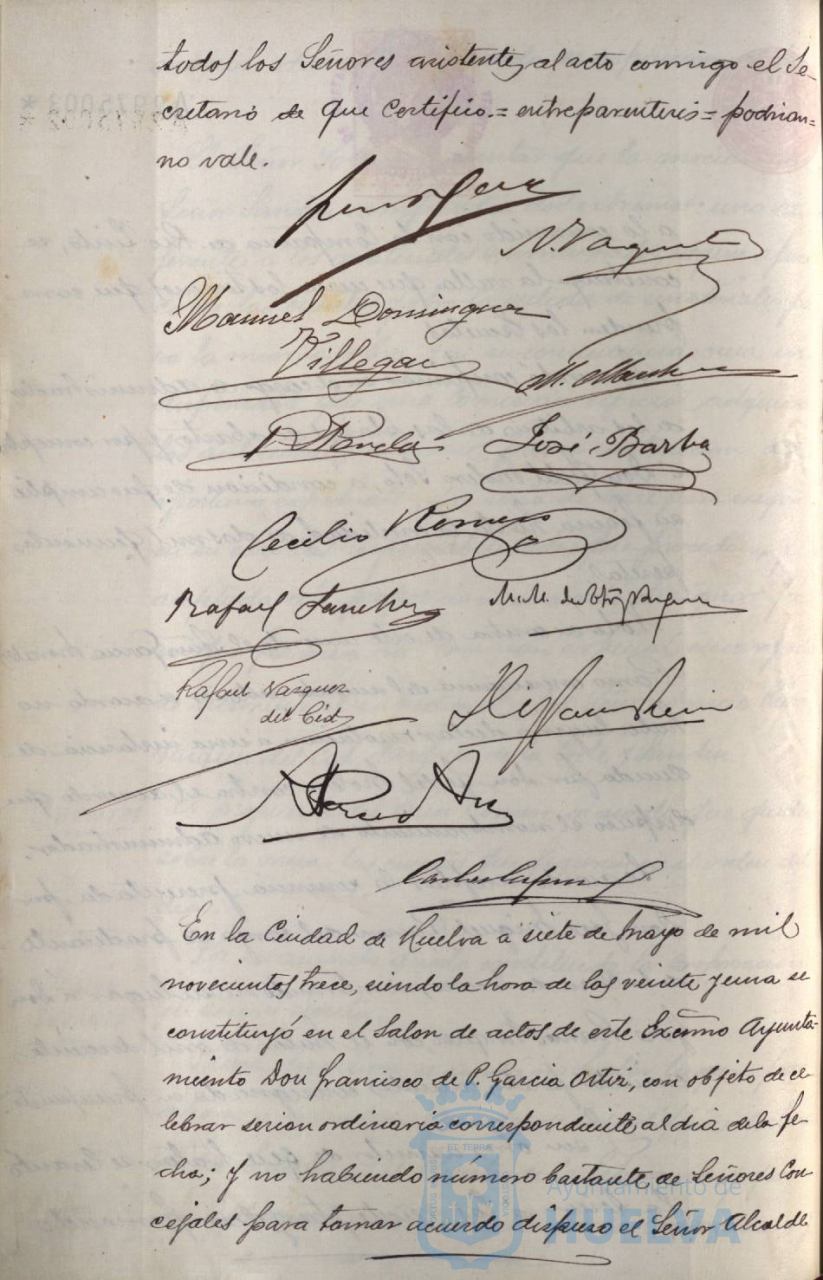 todos los Señores asistentes al acto conmigo el Se-
cretario de que certifico.= entreparentesis = podrian=
no vale.
N. Vazquez
Manuel Dominguez
Villegas
José Barba
Cecilio Romero
Rafael Sanchez
Rafael Vazquez
del Cid
En la Ciudad de Huelva a siete de Mayo de mil
novecientos trece, siendo la hora de las veinte y una se
constituyó en el Salon de actos de este Excmo Ayunta-
miento Don Francisco de P. Garcia Ortiz, con objeto de ce
lebrar sesion ordinaria correspondiente al dia de la fe-
cha; y no habiendo número bastante de Señores Con
cejales para tomar acuerdo dispuso el Señor Alcalde
Ayuntamiento de
HUELVA